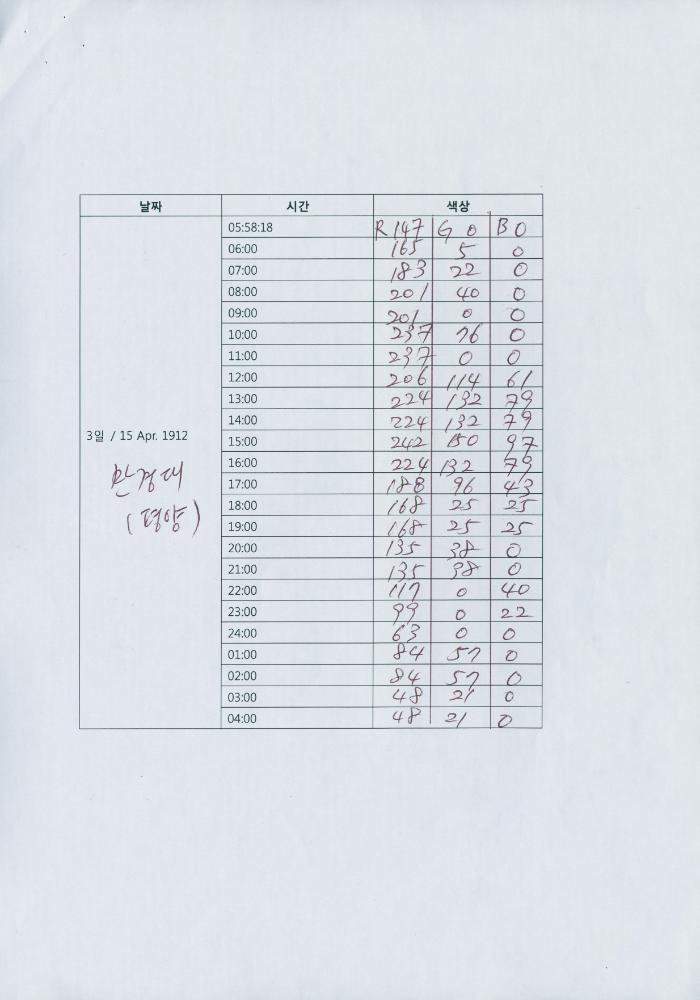 날짜 시간 색상
05:58:18 R 147 G 0 B 0
06:00 165 5 0
07:00 183 22 0
08:00 201 40 0
09:00 201 0 0
10:00 237 76 0
11:00 237 0 0
12:00 206 114 61
13:00 224 132 79
14:00 224 132 79
3일 / 15 Apr. 1912
15:00 242 150 97
16:00 224 132 79
만경대
17:00 188 96 43
18:00 168 25 25
(평양)
19:00 168 25 25
20:00 135 38 0
21:00 135 38 0
22:00 117 0 40
23:00 99 0 22
24:00 63 0 0
01:00 84 57 0
02:00 84 57 0
03:00 48 21 0
04:00 48 21 0